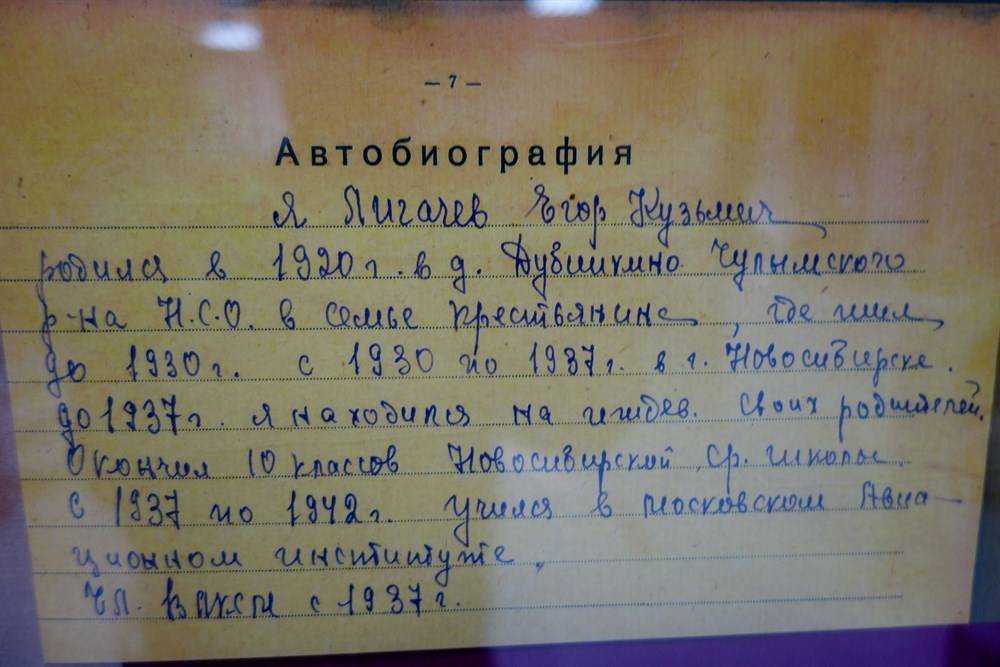 — 7 —
Автобиография
Я Лигачев Егор Кузьмич
родился в 1920 г. в д. Дубинкино Чулымского
р-на Н.С.О. в семье крестьянина, где жил
до 1930 г. с 1930 по 1937 г. в г. Новосибирске.
до 1937 г. я находился на иждев. своих родителей.
Окончил 10 классов Новосибирской ср. школы.
с 1937 по 1942 г. учился в Московском Авиа-
ционном институте,
Чл. ВЛКСМ с 1937 г.